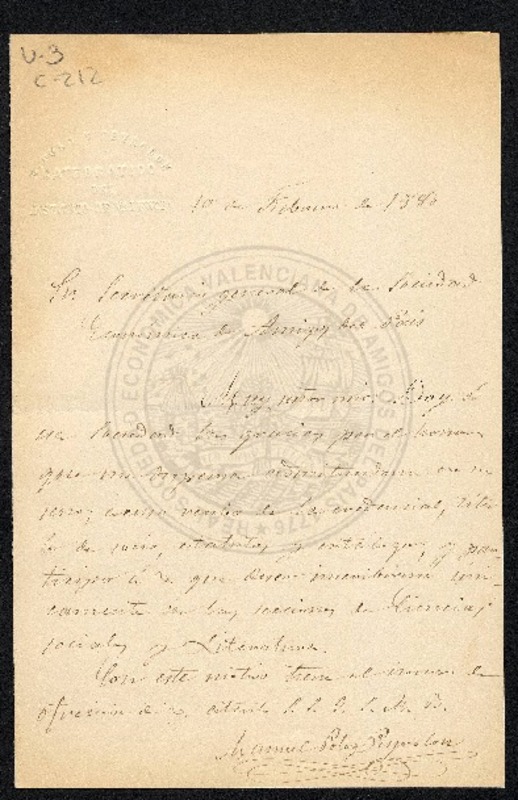 V-3
C-212
10 de Febrero de 1880
Sr. Secretario general de la Sociedad
Económica de Amigos del País
Muy señor mio: Doy á
esa Sociedad las gracias por el honor
que me dispensa admitiendome en su
seno; acuso recibo de la credencial, títu-
lo de socio, estatutos y catálogo, y par-
ticipo á V. que deseo inscribirme úni-
camente en las secciones de Ciencias
sociales y Literatura.
Con este motivo tiene el honor de
ofrecerse de V. atento S. S. Q. S. M. B.
Manuel Polo y Peyrolón
REAL SOCIEDAD ECONOMICA VALENCIANA DE AMIGOS DEL PAIS 1776